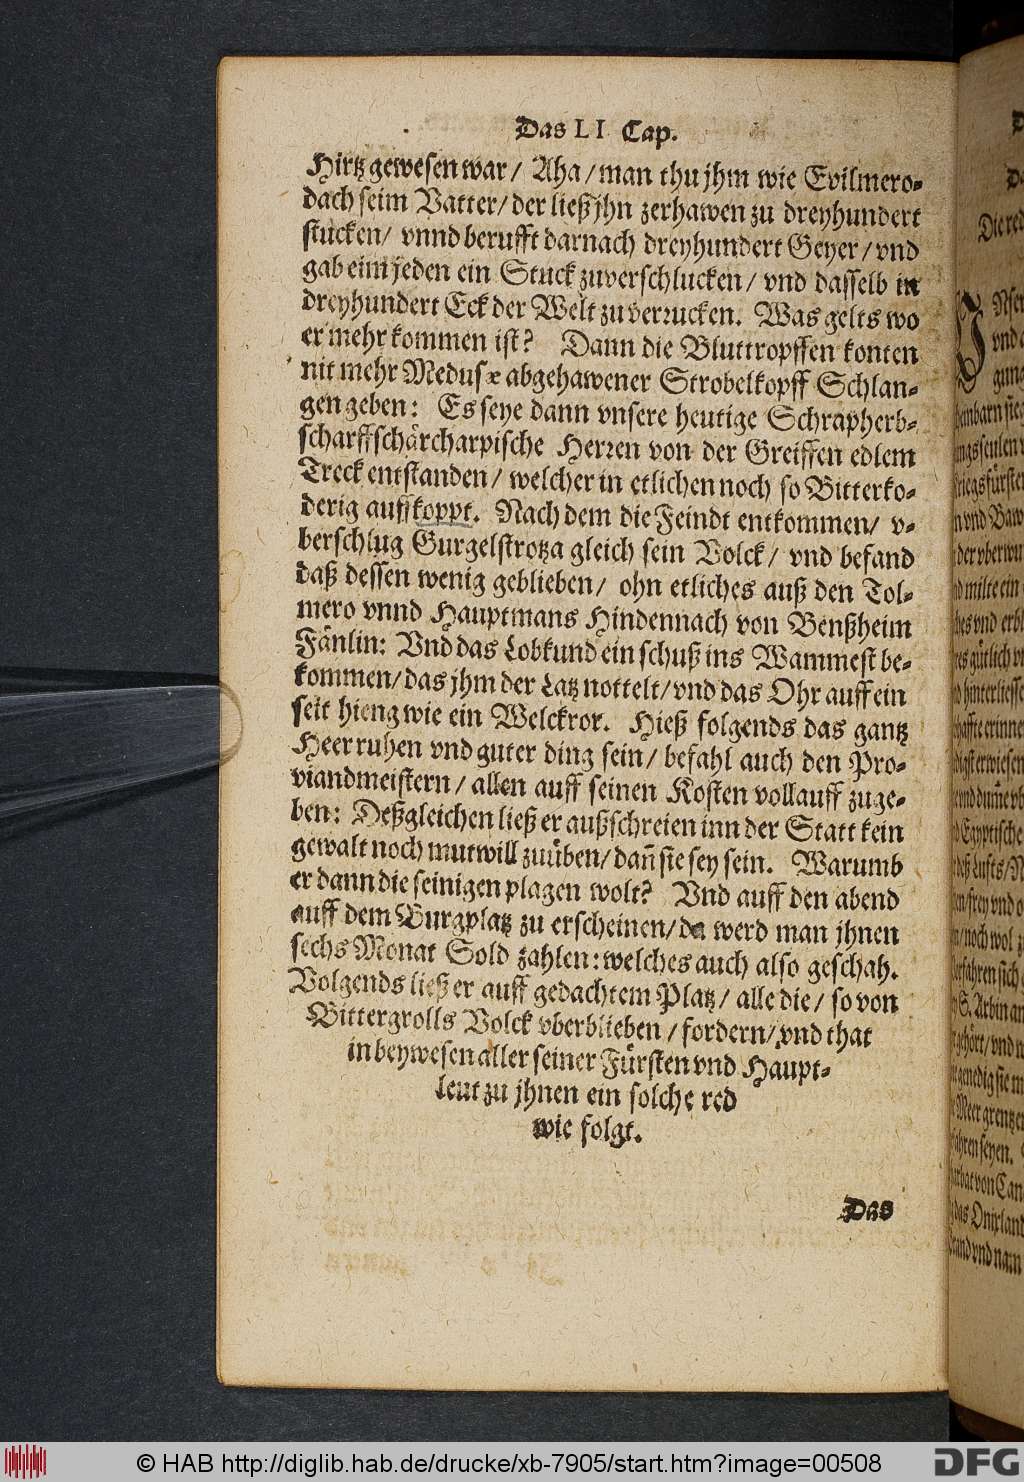 Das LI Cap.
Hirtz gewesen war / Aha / man thu jhm wie Evilmero-
dach seim Vatter / der ließ jhn zerhawen zu dreyhundert
stucken / vnnd berufft darnach dreyhundert Geyer / vnd
gab eim jeden ein Stuck zuverschlucken / vnd dasselb in
dreyhundert Eck der Welt zu verzucken. Was gelts wo
er mehr kommen ist? Dann die Bluttropffen konten
nit mehr Medusæ abgehawener Strobelkopff Schlan-
gen geben: Es seye dann vnsere heutige Schrapherb-
scharffschärcharpische Herren von der Greiffen edlem
Treck entstanden / welcher in etlichen noch so Bitterko-
derig auffkoppt. Nach dem die Feindt entkommen / v-
berschlug Gurgelstrotza gleich sein Volck / vnd befand
daß dessen wenig geblieben / ohn etliches auß den Tol-
mero vnnd Hauptmans Hindennach von Benßheim
Fänlin: Vnd das Lobkund ein schuß ins Wammest be-
kommen / das jhm der Latz nottelt / vnd das Ohr auff ein
seit hieng wie ein Welckror. Hieß folgends das gantz
Heer ruhen vnd guter ding sein / befahl auch den Pro-
viandmeistern / allen auff seinen Kosten vollauff zuge-
ben: Deßgleichen ließ er außschreien inn der Statt kein
gewalt noch mutwill zuüben / dañ sie sey sein. Warumb
er dann die seinigen plagen wolt? Vnd auff den abend
auff dem Burgplatz zu erscheinen / da werd man jhnen
sechs Monat Sold zahlen: welches auch also geschah.
Volgends ließ er auff gedachtem Platz / alle die / so von
Bittergrolls Volck vberblieben / fordern / vnd that
in beywesen aller seiner Fürsten vnd Haupt-
leut zu jhnen ein solche red
wie folgt.
Das
© HAB http://diglib.hab.de/drucke/xb-7905/start.htm?image=00508
DFG